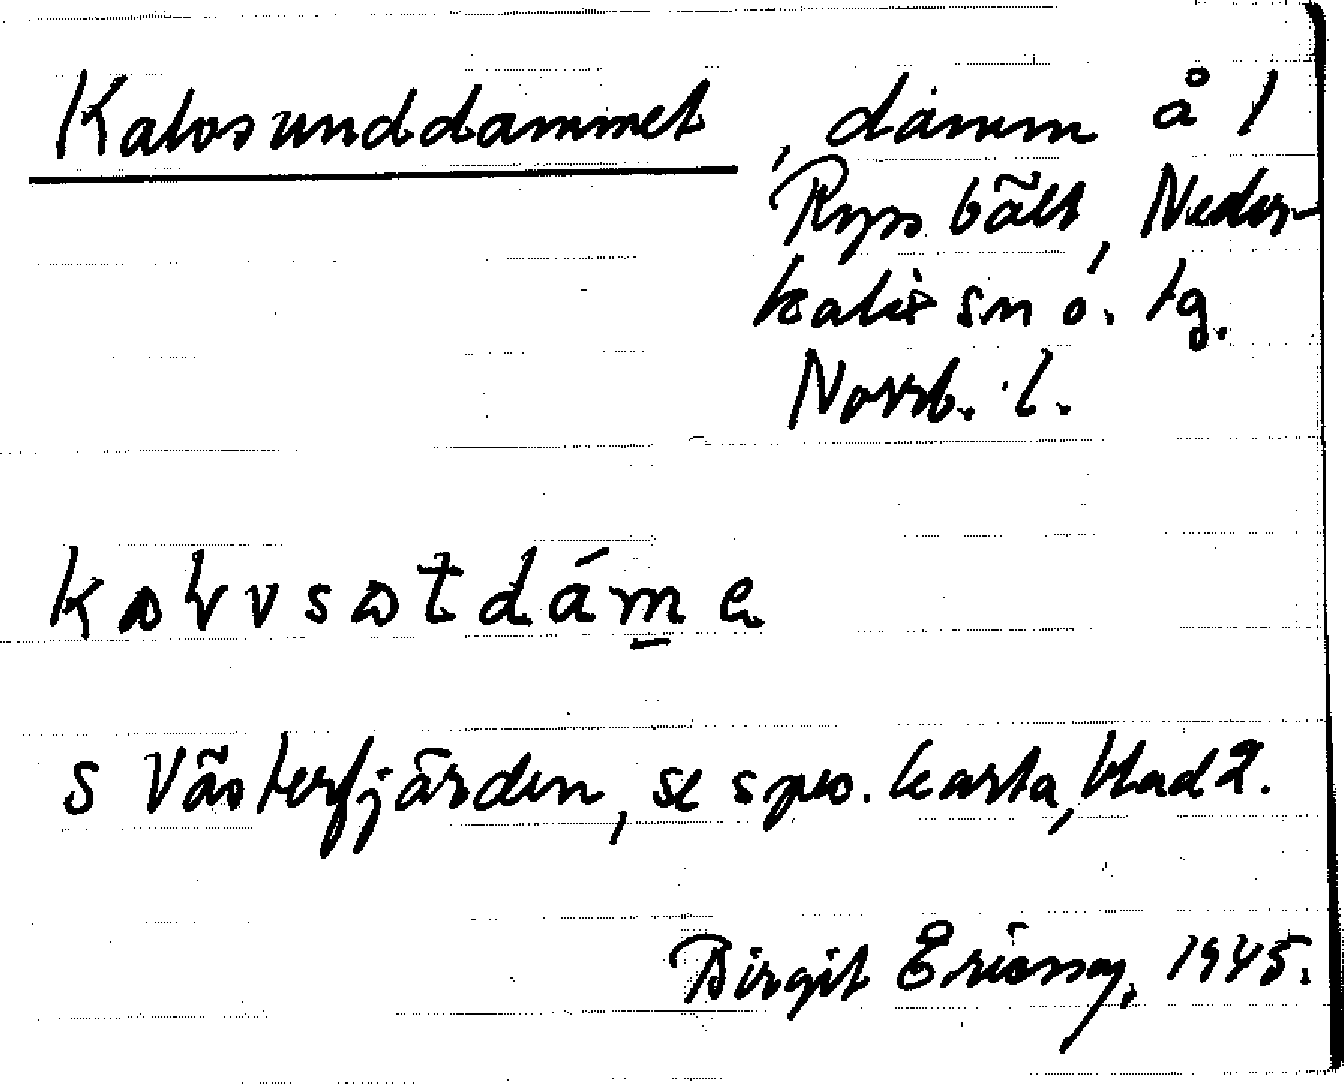 Kalvsunddammet, damm å 1
Ryssbält, Neder-
kalix sn ö. tg.
Norrb. l.
kalvsatdáme
s Västerfjärden, se spec. karta, blad 2.
Birgit Ericson, 1945.